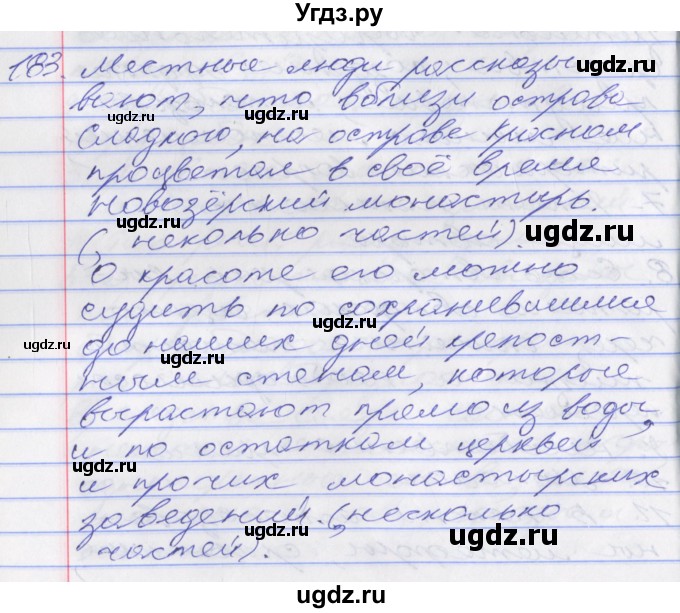 Угдз.ру
183. Местные люди рассказы
вают, что вблизи острова
Сладкого, на острове Красном
процветал в своё время
Новозёрский монастырь.
(, неколько частей).
О красоте его можно
судить по сохранившимся
до наших дней крепост-
ным стенам, которые
вырастают прямо из воды,
и по остаткам церквей
и прочих монастырских
заведений. (несколько
частей).
ugdz.ru
ugdz.ru
ugdz.ru
ugdz.ru
ugdz.ru
ugdz.ru
ugdz.ru
ugdz.ru
ugdz.ru
ugdz.ru
ugdz.ru
ugdz.ru
ugdz.ru
ugdz.ru